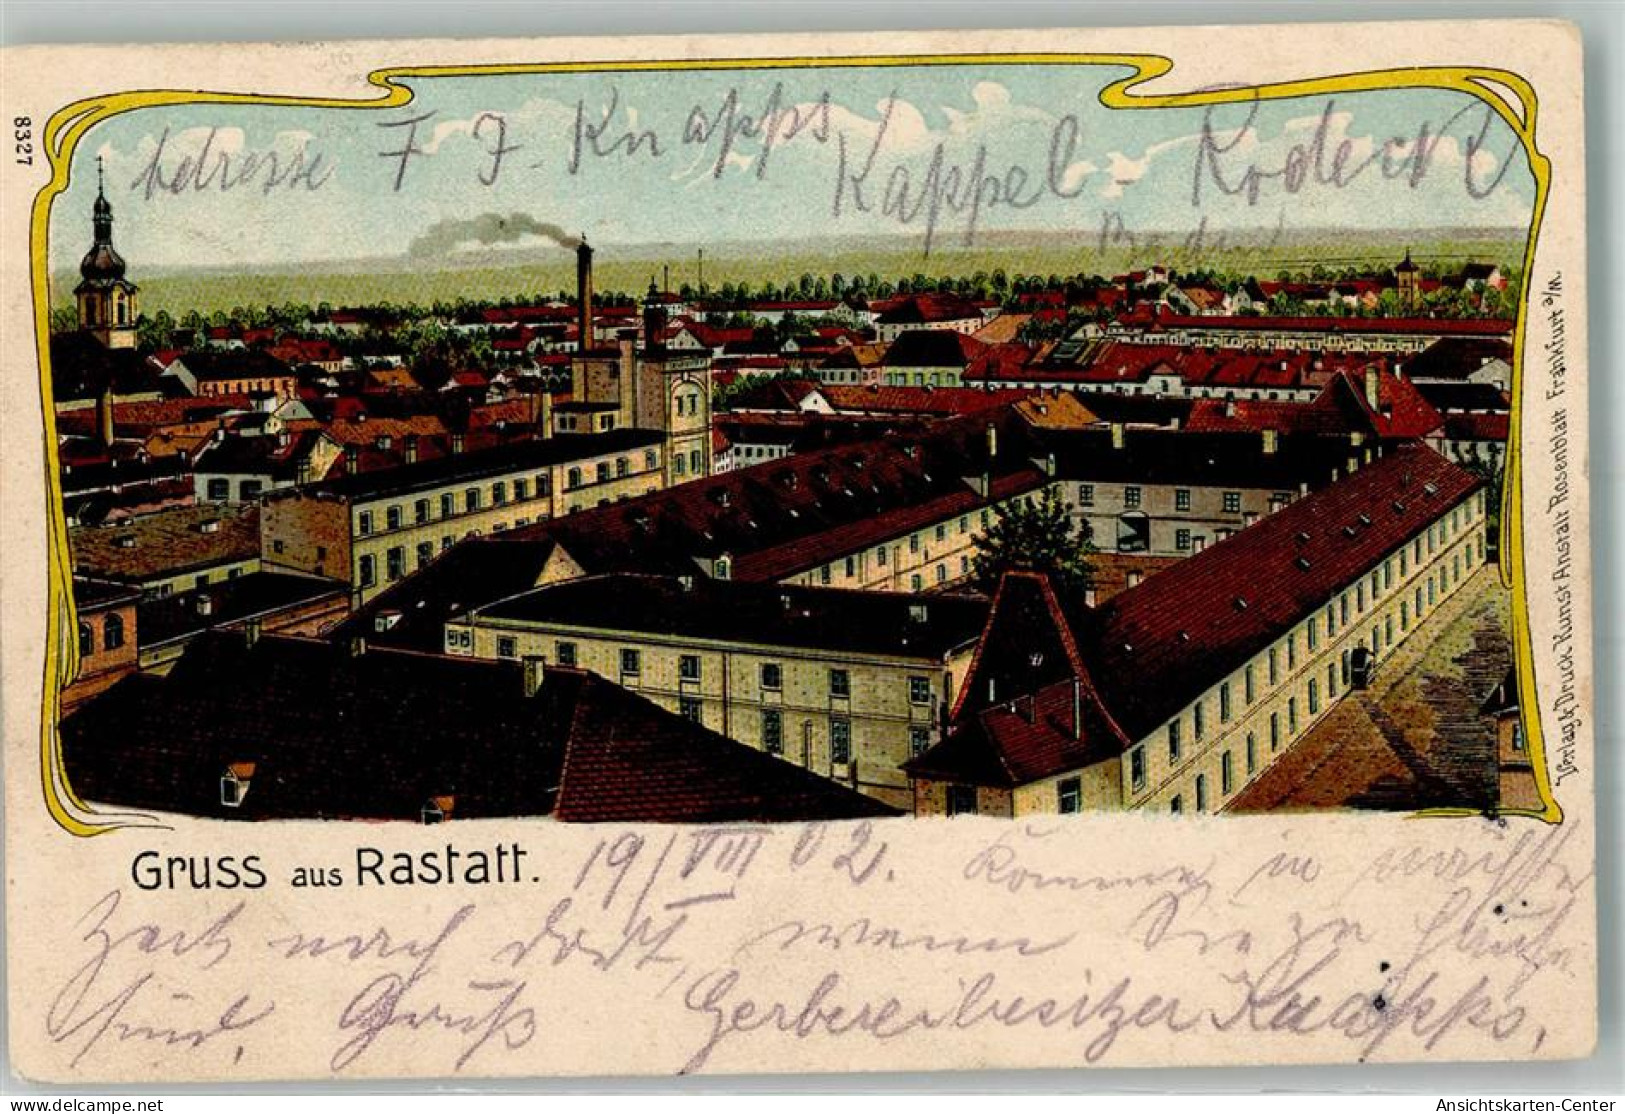 8327
Adresse F J. Knapps Kappel - Rodeck
Baden
Verlag & Druck Kunst Anstalt Rosenblatt Frankfurt a/M.
Gruss aus Rastatt. 19/VIII 02. Komme in nächster
Zeit nach dort, wenn Sie zu Hause
sind. Gruß Gerbereibesitzer Knapps,
delcampe.net
Ansichtskarten-Center